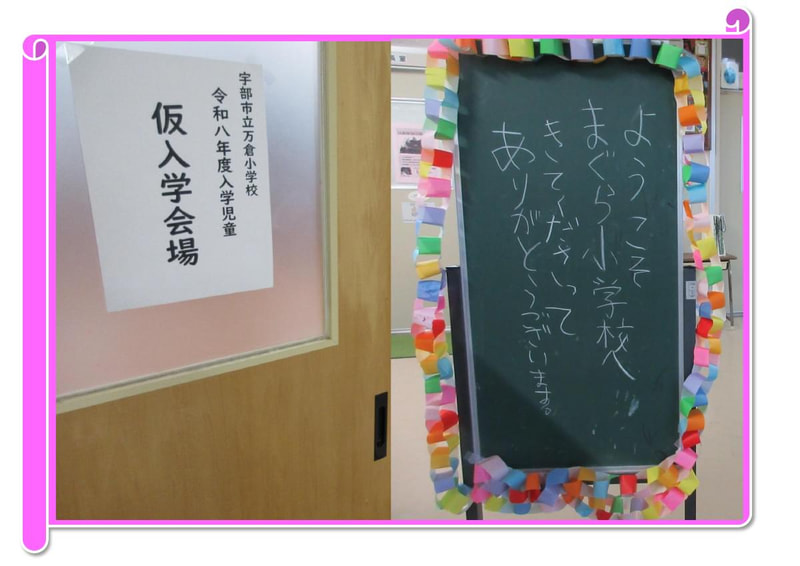 宇部市立万倉小学校
令和八年度入学児童
仮入学会場
ようこそ
まぐら小学校へ
きてくださって
ありがとうございます。